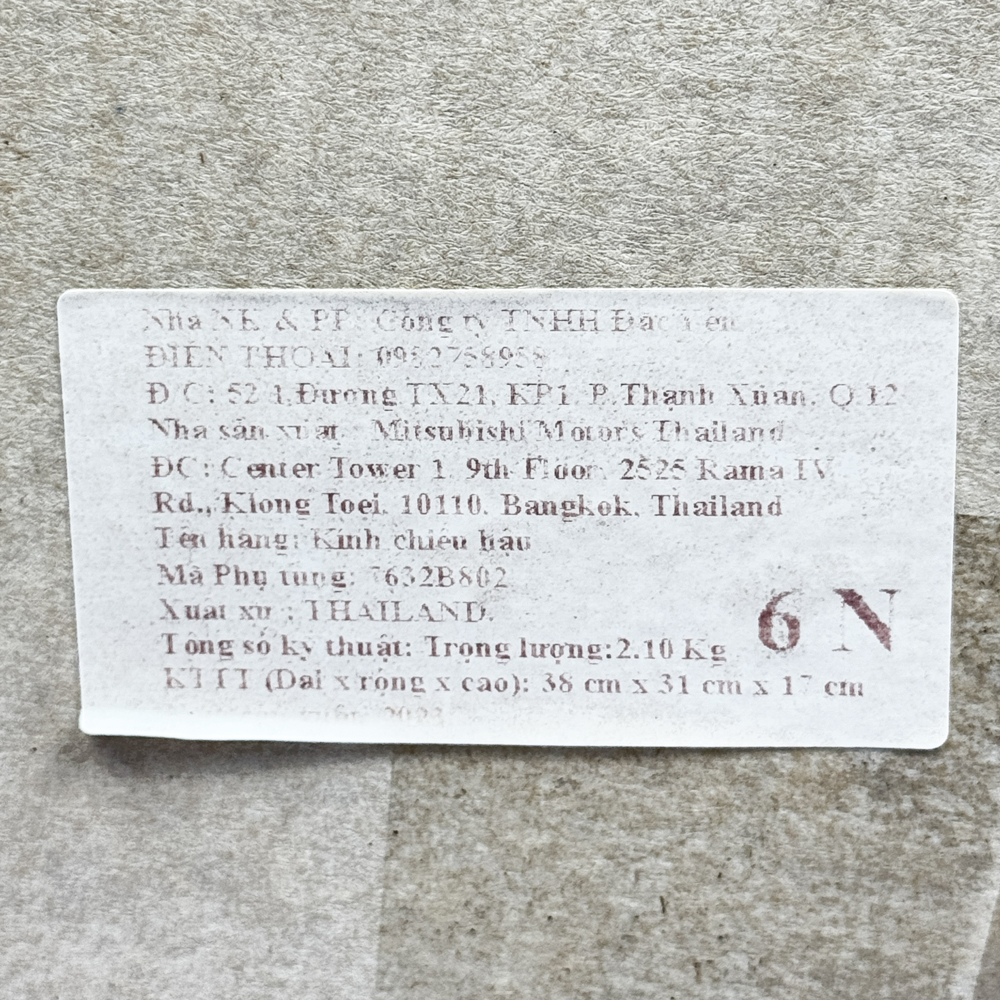 Nhà NK & PP: Công ty TNHH
ĐIỆN THOẠI: 0982758958
Đ/C: 52/1 Đường TX21, KP1, P.Thạnh Xuân, Q.12
Nhà sản xuất: Mitsubishi Motors Thailand
ĐC: Center Tower 1, 9th Floor, 2525 Rama IV
Rd., Klong Toei, 10110, Bangkok, Thailand
Tên hàng: Kính chiếu hậu
Mã Phụ tùng: 7632B802
Xuất xứ : THAILAND.
Tông số kỹ thuật: Trọng lượng:2.10 Kg
KTTT (Dài x rộng x cao): 38 cm x 31 cm x 17 cm
6 N